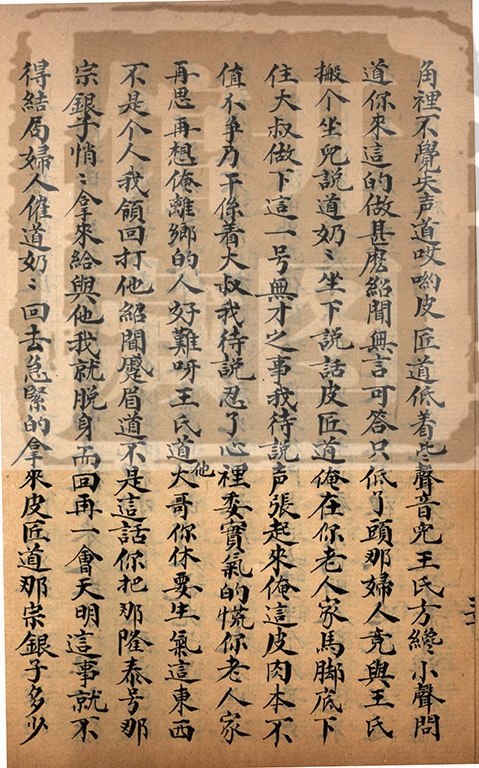 角裡不覺失声道哎喲皮匠道低着些聲音兒王氏方纔小聲問
道你來這的做甚麽紹聞無言可答只低了頭那婦人竟與王氏
搬个坐兒說道奶〻坐下說話皮匠道俺在你老人家馬脚底下
住大叔做下這一号無才之事我待說声張起來俺這皮肉本不
值不爭乃干係着大叔我待說忍了心裡委實氣的慌你老人家
再思再想俺離鄉的人好難呀王氏道他大哥你休要生氣這東西
不是个人我領回打他紹聞蹙眉道不是這話你把那隆泰号那
宗銀子悄〻拿來給與他我就脫身而回再一會天明這事就不
得結局婦人催道奶〻回去急緊的拿來皮匠道那宗銀子多少